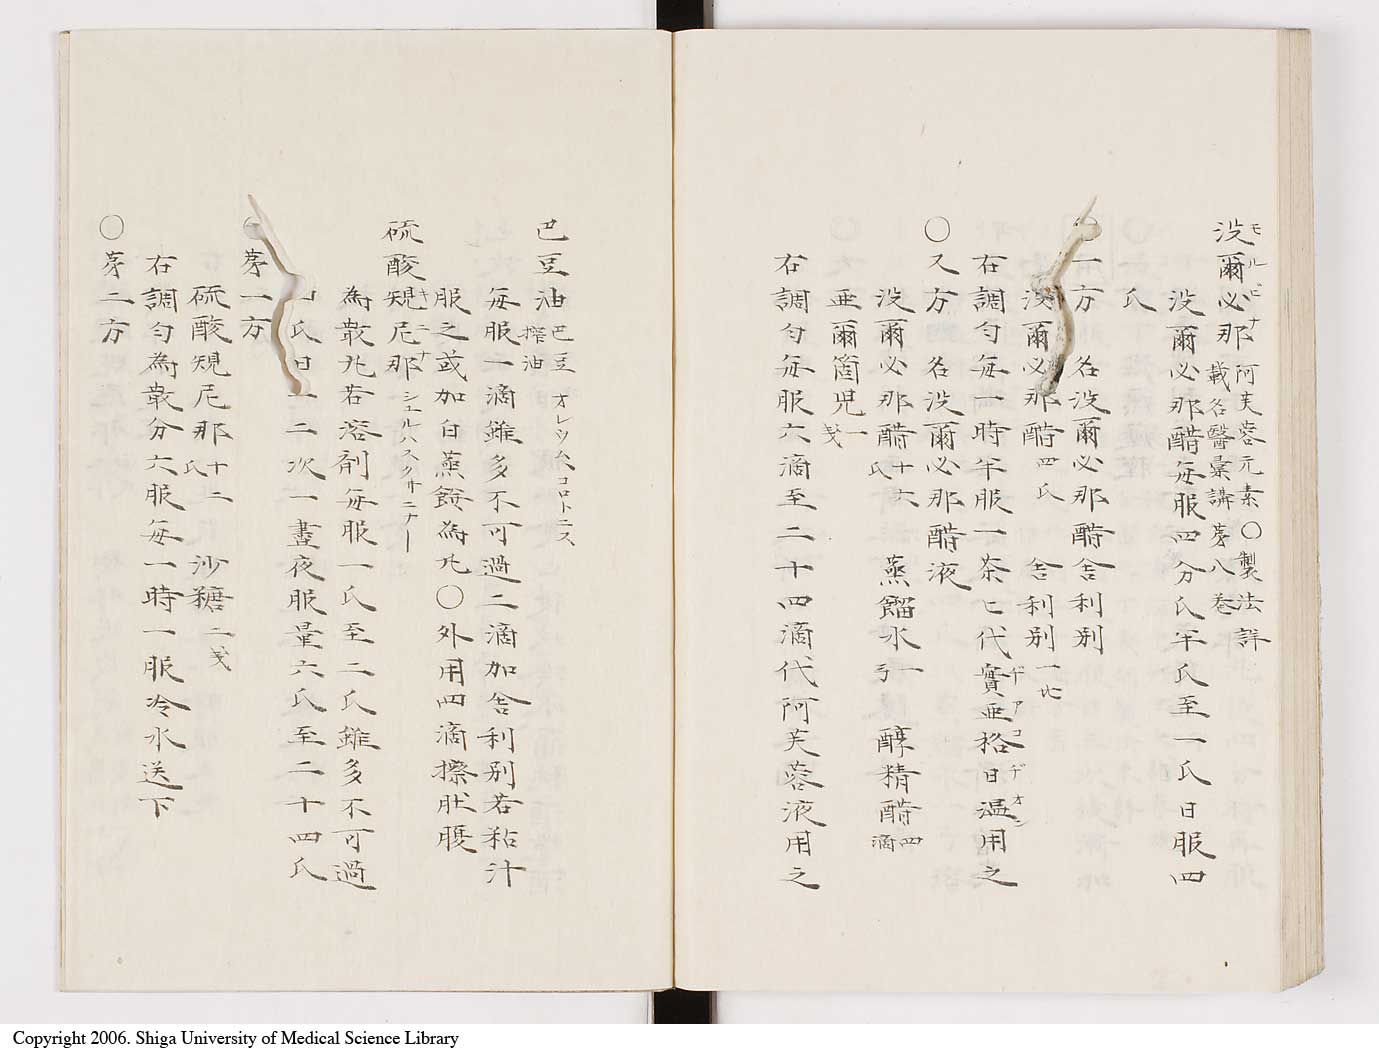 没爾必那 阿芙蓉元素〇製法詳載名醫彙講苐八巻
モルビナ
没爾必那醋毎服四分氏半氏至一氏日服四
氏
一方 名没爾必那醋舎利別
没爾必那醋四氏 舎利別一
右調匀毎一時半服一茶匕代實亜格日温用之
〇又方 名没爾必那醋液
没爾必那醋十六氏 蒸餾水一 醇精醋四滴
亜爾箇児一戔
右調匀毎服六滴至二十四滴代阿芙蓉液用之
巴豆油 巴豆搾油 オレウムコロトニス
毎服一滴雖多不可過二滴加舎利別若粘汁
服之或加白蒸餅為丸〇外用四滴擦肚腹
硫酸規尼那 シュルハスクサニナー
キニナ
為散丸若溶剤毎服一氏至二氏雖多不可過
氏日 二次一晝夜服量六氏至二十四氏
苐一方
硫酸規尼那十二氏 沙糖二戔
右調匀為散分六服毎一時一服冷水送下
〇苐二方
Copyright 2006. Shiga University of Medical Science Library